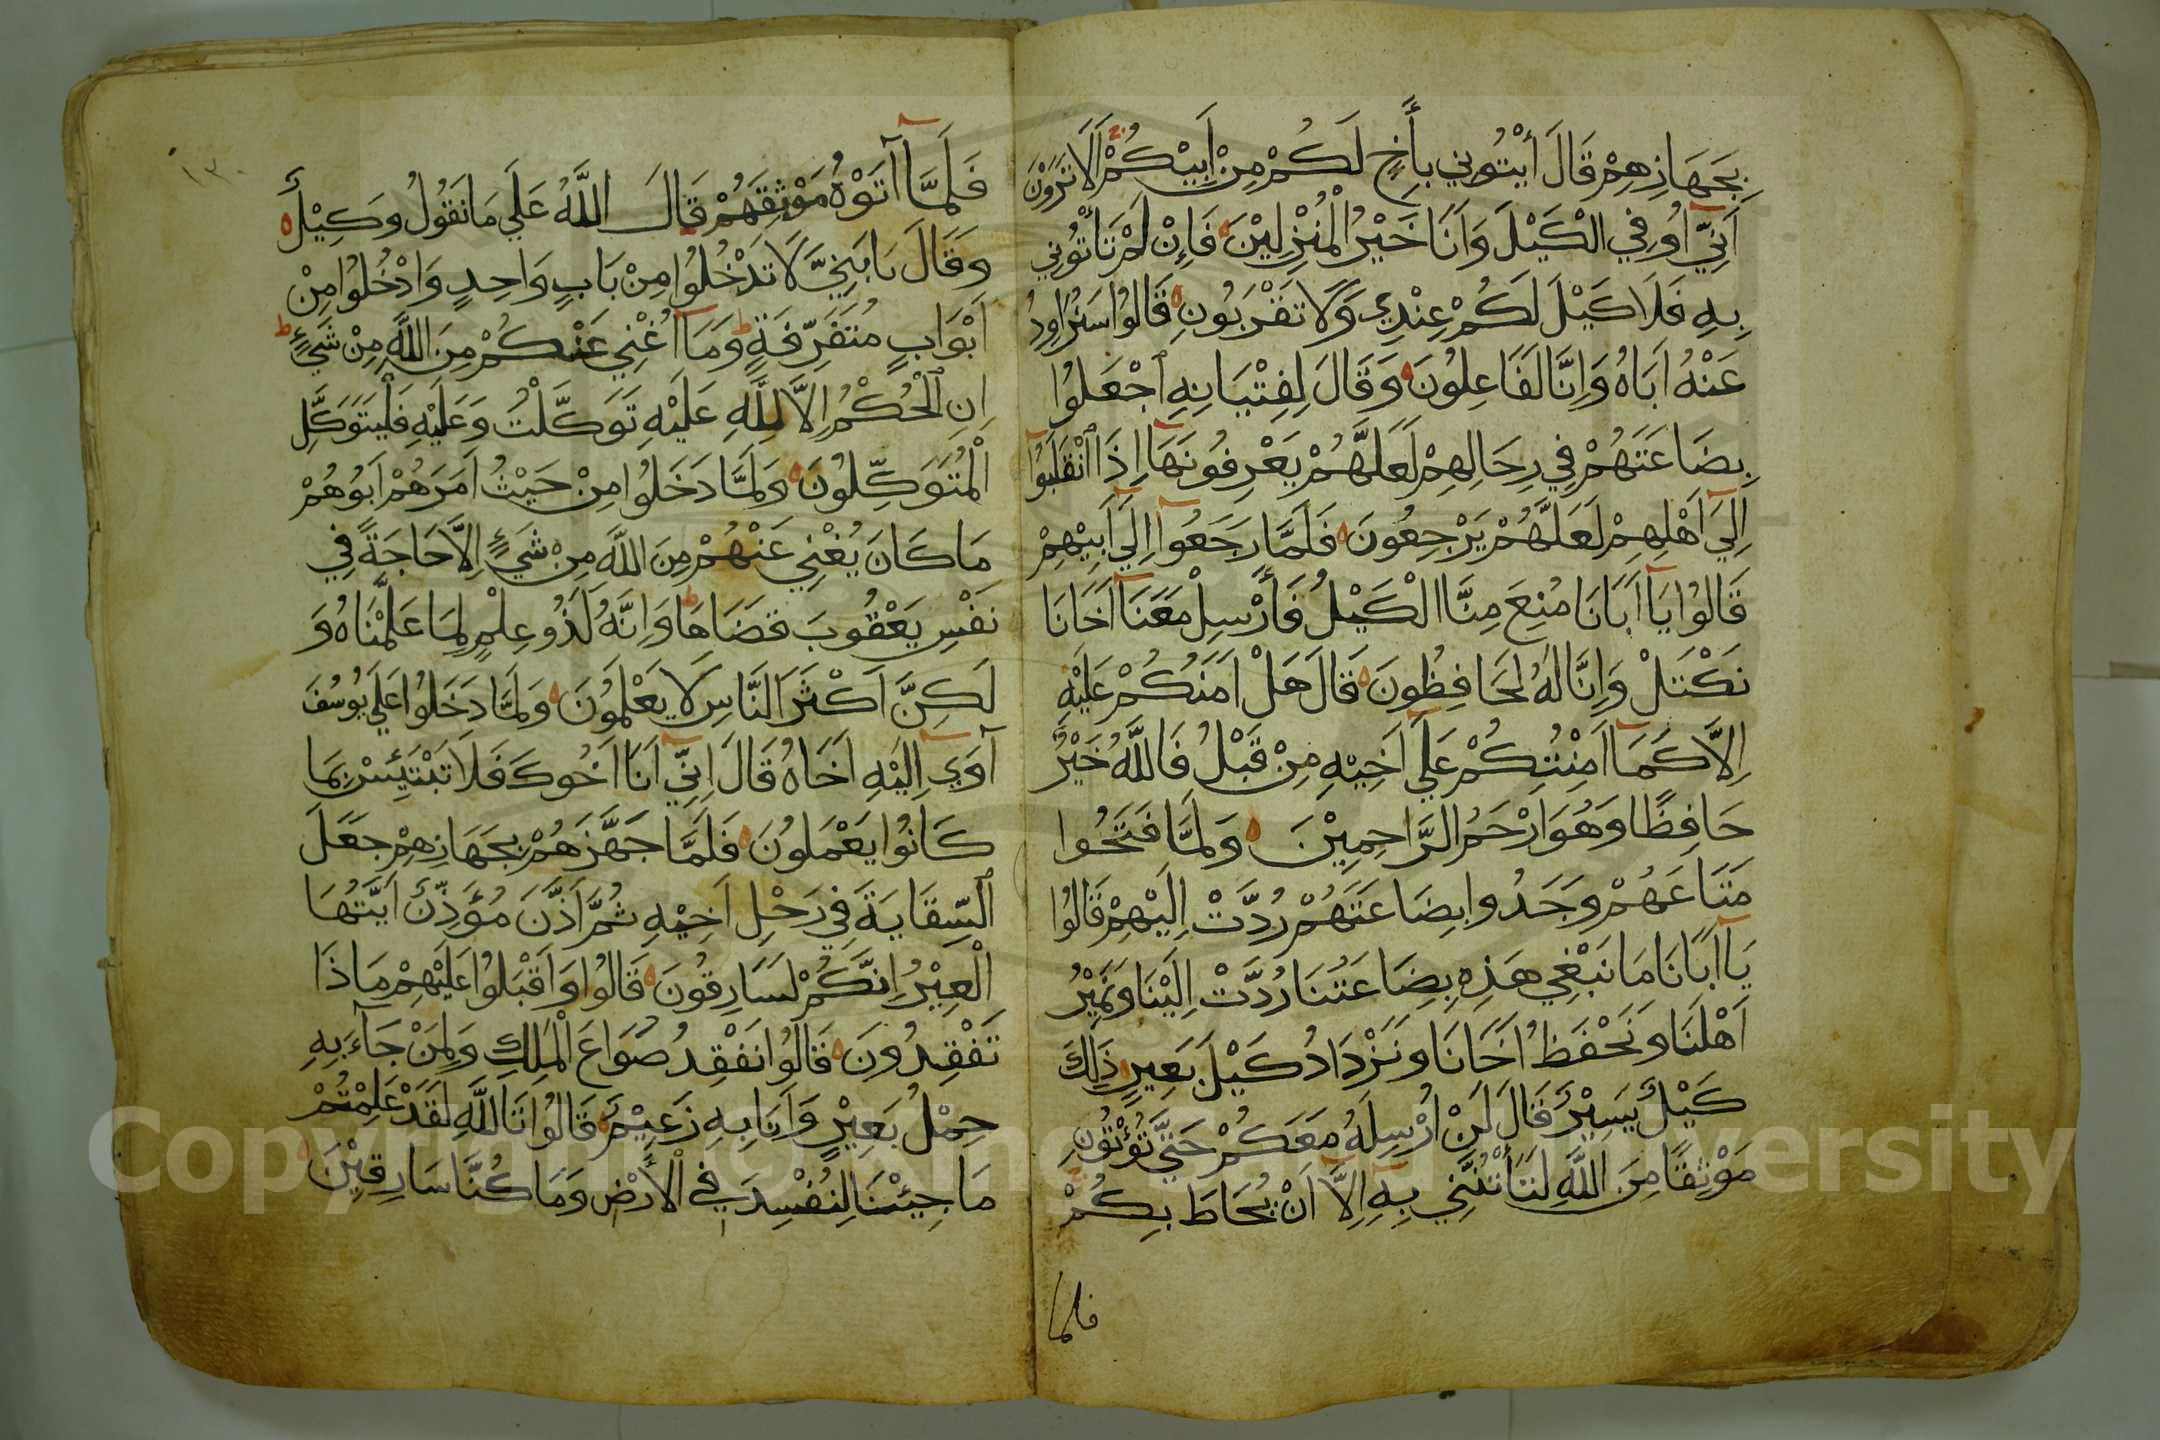 بِجَهَازِهِمْ قَالَ ائْتُونِي بِأَخٍ لَكُمْ مِنْ أَبِيْكُمْ أَلَا تَرَوْنَ
اَنِّي اُوفِي الْكَيْلَ وَاَنَا خَيْرُ الْمُنْزِلِيْنَ فَاِنْ لَمْ تَأْتُوْنِي
بِهِ فَلَا كَيْلَ لَكُمْ عِنْدِي وَلَا تَقْرَبُونِ قَالُوْا سَنُرَاوِدُ
عَنْهُ اَبَاهُ وَاِنَّا لَفَاعِلُونَ وَقَالَ لِفِتْيَانِهِ اجْعَلُوْا
بِضَاعَتَهُمْ فِي رِحَالِهِمْ لَعَلَّهُمْ يَعْرِفُونَهَا اِذَا انْقَلَبُوْا
اِلَى اَهْلِهِمْ لَعَلَّهُمْ يَرْجِعُونَ فَلَمَّا رَجَعُوْا اِلَى اَبِيْهِمْ
قَالُوْا يَآ اَبَانَا مُنِعَ مِنَّا الْكَيْلُ فَأَرْسِلْ مَعَنَا اَخَانَا
نَكْتَلْ وَاِنَّا لَهُ لَحَافِظُونَ قَالَ هَلْ اٰمَنُكُمْ عَلَيْهِ
اِلَّا كَمَا اَمِنْتُكُمْ عَلَى اَخِيْهِ مِنْ قَبْلُ فَاللَّهُ خَيْرٌ
حَافِظًا وَهُوَ اَرْحَمُ الرَّاحِمِيْنَ وَلَمَّا فَتَحُوا
مَتَاعَهُمْ وَجَدُوا بِضَاعَتَهُمْ رُدَّتْ اِلَيْهِمْ قَالُوْا
يَآ اَبَانَا مَا نَبْغِي هَذِهِ بِضَاعَتُنَا رُدَّتْ اِلَيْنَا وَنَمِيْرُ
اَهْلَنَا وَنَحْفَظُ اَخَانَا وَنَزْدَادُ كَيْلَ بَعِيرٍ ذٰلِكَ
كَيْلٌ يَسِيْرٌ قَالَ لَنْ اُرْسِلَهُ مَعَكُمْ حَتَّى تُؤْتُونِ
مَوْثِقًا مِنَ اللَّهِ لَتَأْتُنَّنِي بِهِ اِلَّا اَنْ يُحَاطَ بِكُمْ
فلما
١٣٠
فَلَمَّا آتَوْهُ مَوْثِقَهُمْ قَالَ اللَّهُ عَلَى مَا نَقُولُ وَكِيْلٌ
وَقَالَ يَا بَنِيَّ لَا تَدْخُلُوْا مِنْ بَابٍ وَاحِدٍ وَادْخُلُوْا مِنْ
اَبْوَابٍ مُتَفَرِّقَةٍ وَمَا اُغْنِي عَنْكُمْ مِنَ اللَّهِ مِنْ شَيْءٍ
اِنِ الْحُكْمُ اِلَّا لِلَّهِ عَلَيْهِ تَوَكَّلْتُ وَعَلَيْهِ فَلْيَتَوَكَّلِ
الْمُتَوَكِّلُونَ وَلَمَّا دَخَلُوْا مِنْ حَيْثُ اَمَرَهُمْ اَبُوْهُمْ
مَا كَانَ يُغْنِي عَنْهُمْ مِنَ اللَّهِ مِنْ شَيْءٍ اِلَّا حَاجَةً فِي
نَفْسِ يَعْقُوبَ قَضَاهَا وَاِنَّهُ لَذُو عِلْمٍ لِمَا عَلَّمْنَاهُ وَ
لَكِنَّ اَكْثَرَ النَّاسِ لَا يَعْلَمُونَ وَلَمَّا دَخَلُوْا عَلَى يُوسُفَ
آوَى اِلَيْهِ اَخَاهُ قَالَ اِنِّي اَنَا اَخُوكَ فَلَا تَبْتَئِسْ بِمَا
كَانُوْا يَعْمَلُونَ فَلَمَّا جَهَّزَهُمْ بِجَهَازِهِمْ جَعَلَ
السِّقَايَةَ فِي رَحْلِ اَخِيْهِ ثُمَّ اَذَّنَ مُؤَذِّنٌ اَيَّتُهَا
الْعِيْرُ اِنَّكُمْ لَسَارِقُونَ قَالُوْا وَاَقْبَلُوْا عَلَيْهِمْ مَاذَا
تَفْقِدُونَ قَالُوْا نَفْقِدُ صُوَاعَ الْمَلِكِ وَلِمَنْ جَآءَ بِهِ
حِمْلُ بَعِيْرٍ وَاَنَا بِهِ زَعِيْمٌ قَالُوْا تَاللَّهِ لَقَدْ عَلِمْتُمْ
مَا جِئْنَا لِنُفْسِدَ فِي الْأَرْضِ وَمَا كُنَّا سَارِقِيْنَ
Copyright © King Saud University